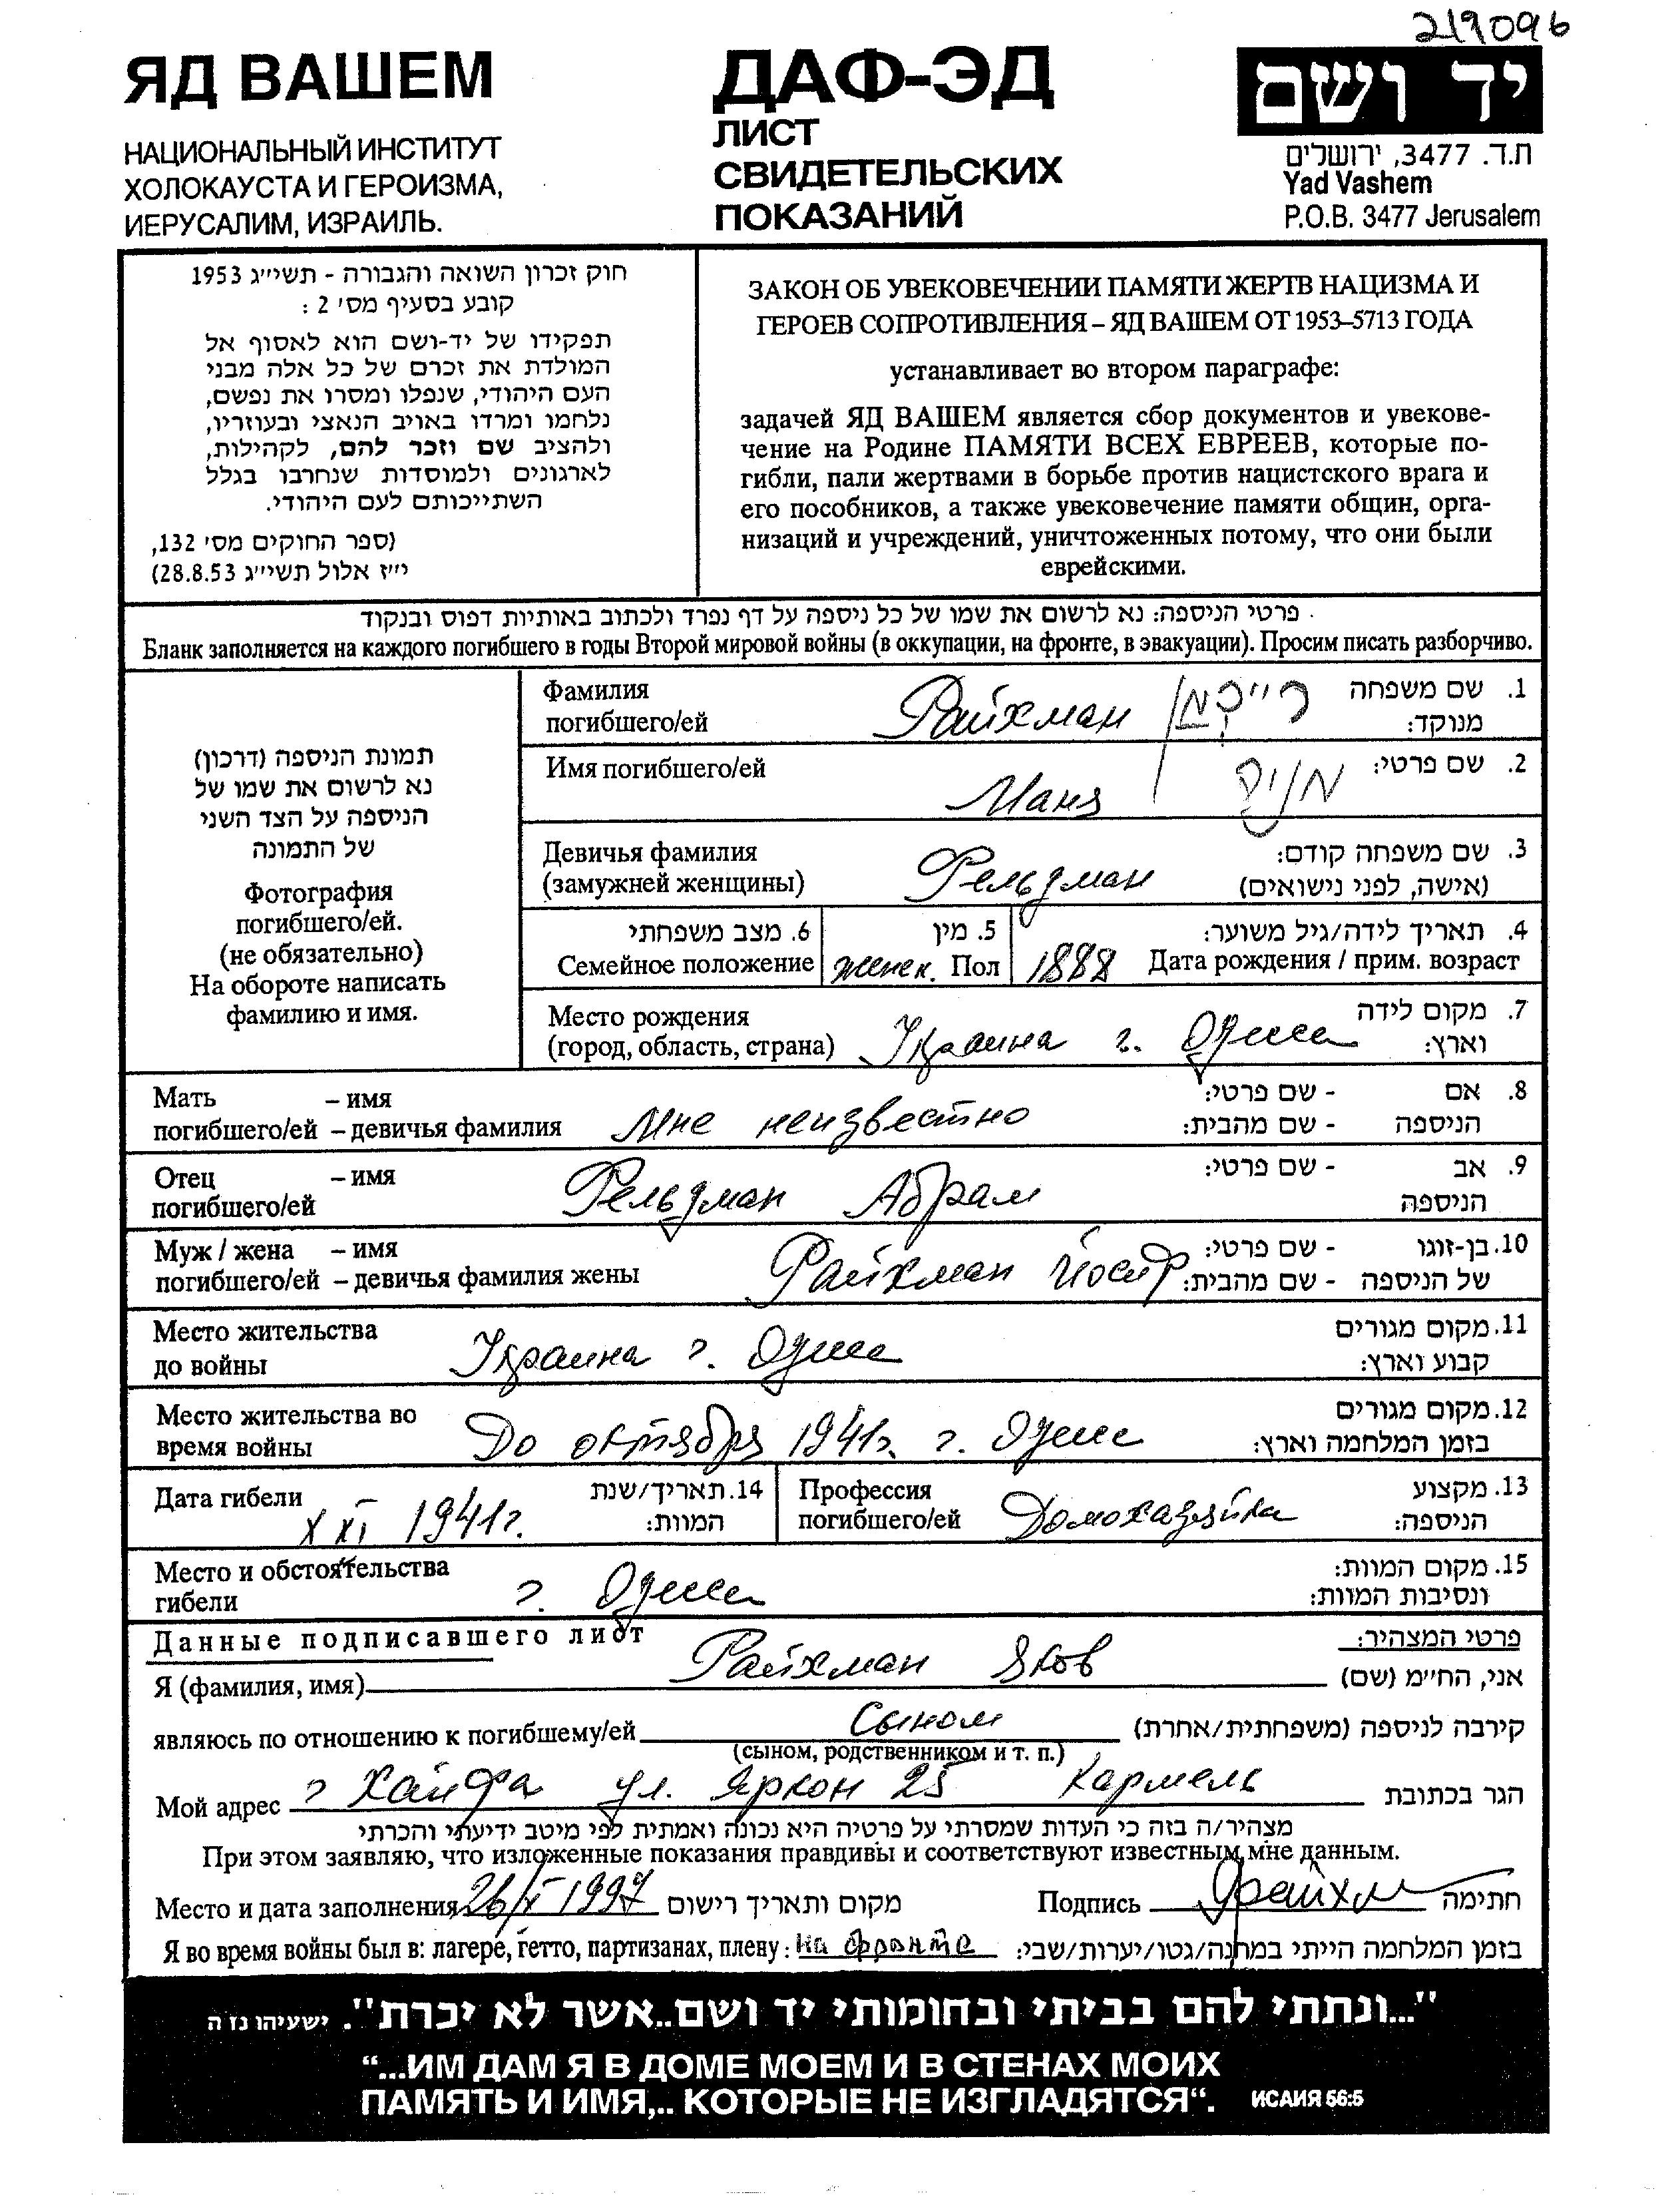 219096
ЯД ВАШЕМ
НАЦИОНАЛЬНЫЙ ИНСТИТУТ
ХОЛОКАУСТА И ГЕРОИЗМА,
ИЕРУСАЛИМ, ИЗРАИЛЬ.
ДАФ-ЭД
ЛИСТ
СВИДЕТЕЛЬСКИХ
ПОКАЗАНИЙ
יד ושם
ת.ד. 3477, ירושלים
Yad Vashem
P.O.B. 3477 Jerusalem
חוק זכרון השואה והגבורה - תשי״ג 1953
קובע בסעיף מס׳ 2 :
תפקידו של יד-ושם הוא לאסוף אל
המולדת את זכרם של כל אלה מבני
העם היהודי, שנפלו ומסרו את נפשם,
נלחמו ומרדו באויב הנאצי ובעוזריו,
ולהציב שם וזכר להם, לקהילות,
לארגונים ולמוסדות שנחרבו בגלל
השתייכותם לעם היהודי.
(ספר החוקים מס׳ 132,
י״ז אלול תשי״ג 28.8.53)
ЗАКОН ОБ УВЕКОВЕЧЕНИИ ПАМЯТИ ЖЕРТВ НАЦИЗМА И
ГЕРОЕВ СОПРОТИВЛЕНИЯ – ЯД ВАШЕМ ОТ 1953–5713 ГОДА
устанавливает во втором параграфе:
задачей ЯД ВАШЕМ является сбор документов и увекове-
чение на Родине ПАМЯТИ ВСЕХ ЕВРЕЕВ, которые по-
гибли, пали жертвами в борьбе против нацистского врага и
его пособников, а также увековечение памяти общин, орга-
низаций и учреждений, уничтоженных потому, что они были
еврейскими.
פרטי הניספה: נא לרשום את שמו של כל ניספה על דף נפרד ולכתוב באותיות דפוס ובנקוד
Бланк заполняется на каждого погибшего в годы Второй мировой войны (в оккупации, на фронте, в эвакуации). Просим писать разборчиво.
תמונת הניספה (דרכון)
נא לרשום את שמו של
הניספה על הצד השני
של התמונה
Фотография
погибшего/ей.
(не обязательно)
На обороте написать
фамилию и имя.
Фамилия Райхман רייכמן 1. שם משפחה
погибшего/ей מנוקד:
Имя погибшего/ей Маня מניה 2. שם פרטי:
Девичья фамилия Фельдман 3. שם משפחה קודם:
(замужней женщины) (אישה, לפני נישואים)
6. מצב משפחתי 5. מין 4. תאריך לידה/גיל משוער:
Семейное положение женск. Пол 1888 Дата рождения / прим. возраст
Место рождения 7. מקום לידה
(город, область, страна) Украина г. Одесса וארץ:
Мать – имя - שם פרטי: 8. אם
погибшего/ей – девичья фамилия Мне неизвестно - שם מהבית: הניספה
Отец – имя Фельдман Абрам - שם פרטי: 9. אב
погибшего/ей הניספה
Муж / жена – имя - שם פרטי: 10. בן-זוגו
погибшего/ей – девичья фамилия жены Райхман Йосиф - שם מהבית: של הניספה
Место жительства 11. מקום מגורים
до войны Украина г. Одесса קבוע וארץ:
Место жительства во 12. מקום מגורים
время войны До октября 1941г. г. Одесса בזמן המלחמה וארץ:
Дата гибели X XI 1941г. 14. תאריך/שנת המוות:
Профессия 13. מקצוע
погибшего/ей Домохазяйка הניספה:
Место и обстоятельства 15. מקום המוות:
гибели г. Одесса ונסיבות המוות:
Данные подписавшего лист פרטי המצהיר:
Я (фамилия, имя) Райхман Яков אני, הח״מ (שם)
являюсь по отношению к погибшему/ей Сыном קירבה לניספה (משפחתית/אחרת)
(сыном, родственником и т. п.)
Мой адрес г Хайфа ул. Яркон 25 Кармель הגר בכתובת
מצהיר/ה בזה כי העדות שמסרתי על פרטיה היא נכונה ואמתית לפי מיטב ידיעתי והכרתי
При этом заявляю, что изложенные показания правдивы и соответствуют известным мне данным.
Место и дата заполнения 26/X 1997 מקום ותאריך רישום Подпись Райхм חתימה
Я во время войны был в: лагере, гетто, партизанах, плену: на фронте בזמן המלחמה הייתי במחנה/גטו/יערות/שבי:
"...ונתתי להם בביתי ובחומותי יד ושם..אשר לא יכרת". ישעיהו נו ה
“...ИМ ДАМ Я В ДОМЕ МОЕМ И В СТЕНАХ МОИХ
ПАМЯТЬ И ИМЯ,.. КОТОРЫЕ НЕ ИЗГЛАДЯТСЯ“. ИСАИЯ 56:5